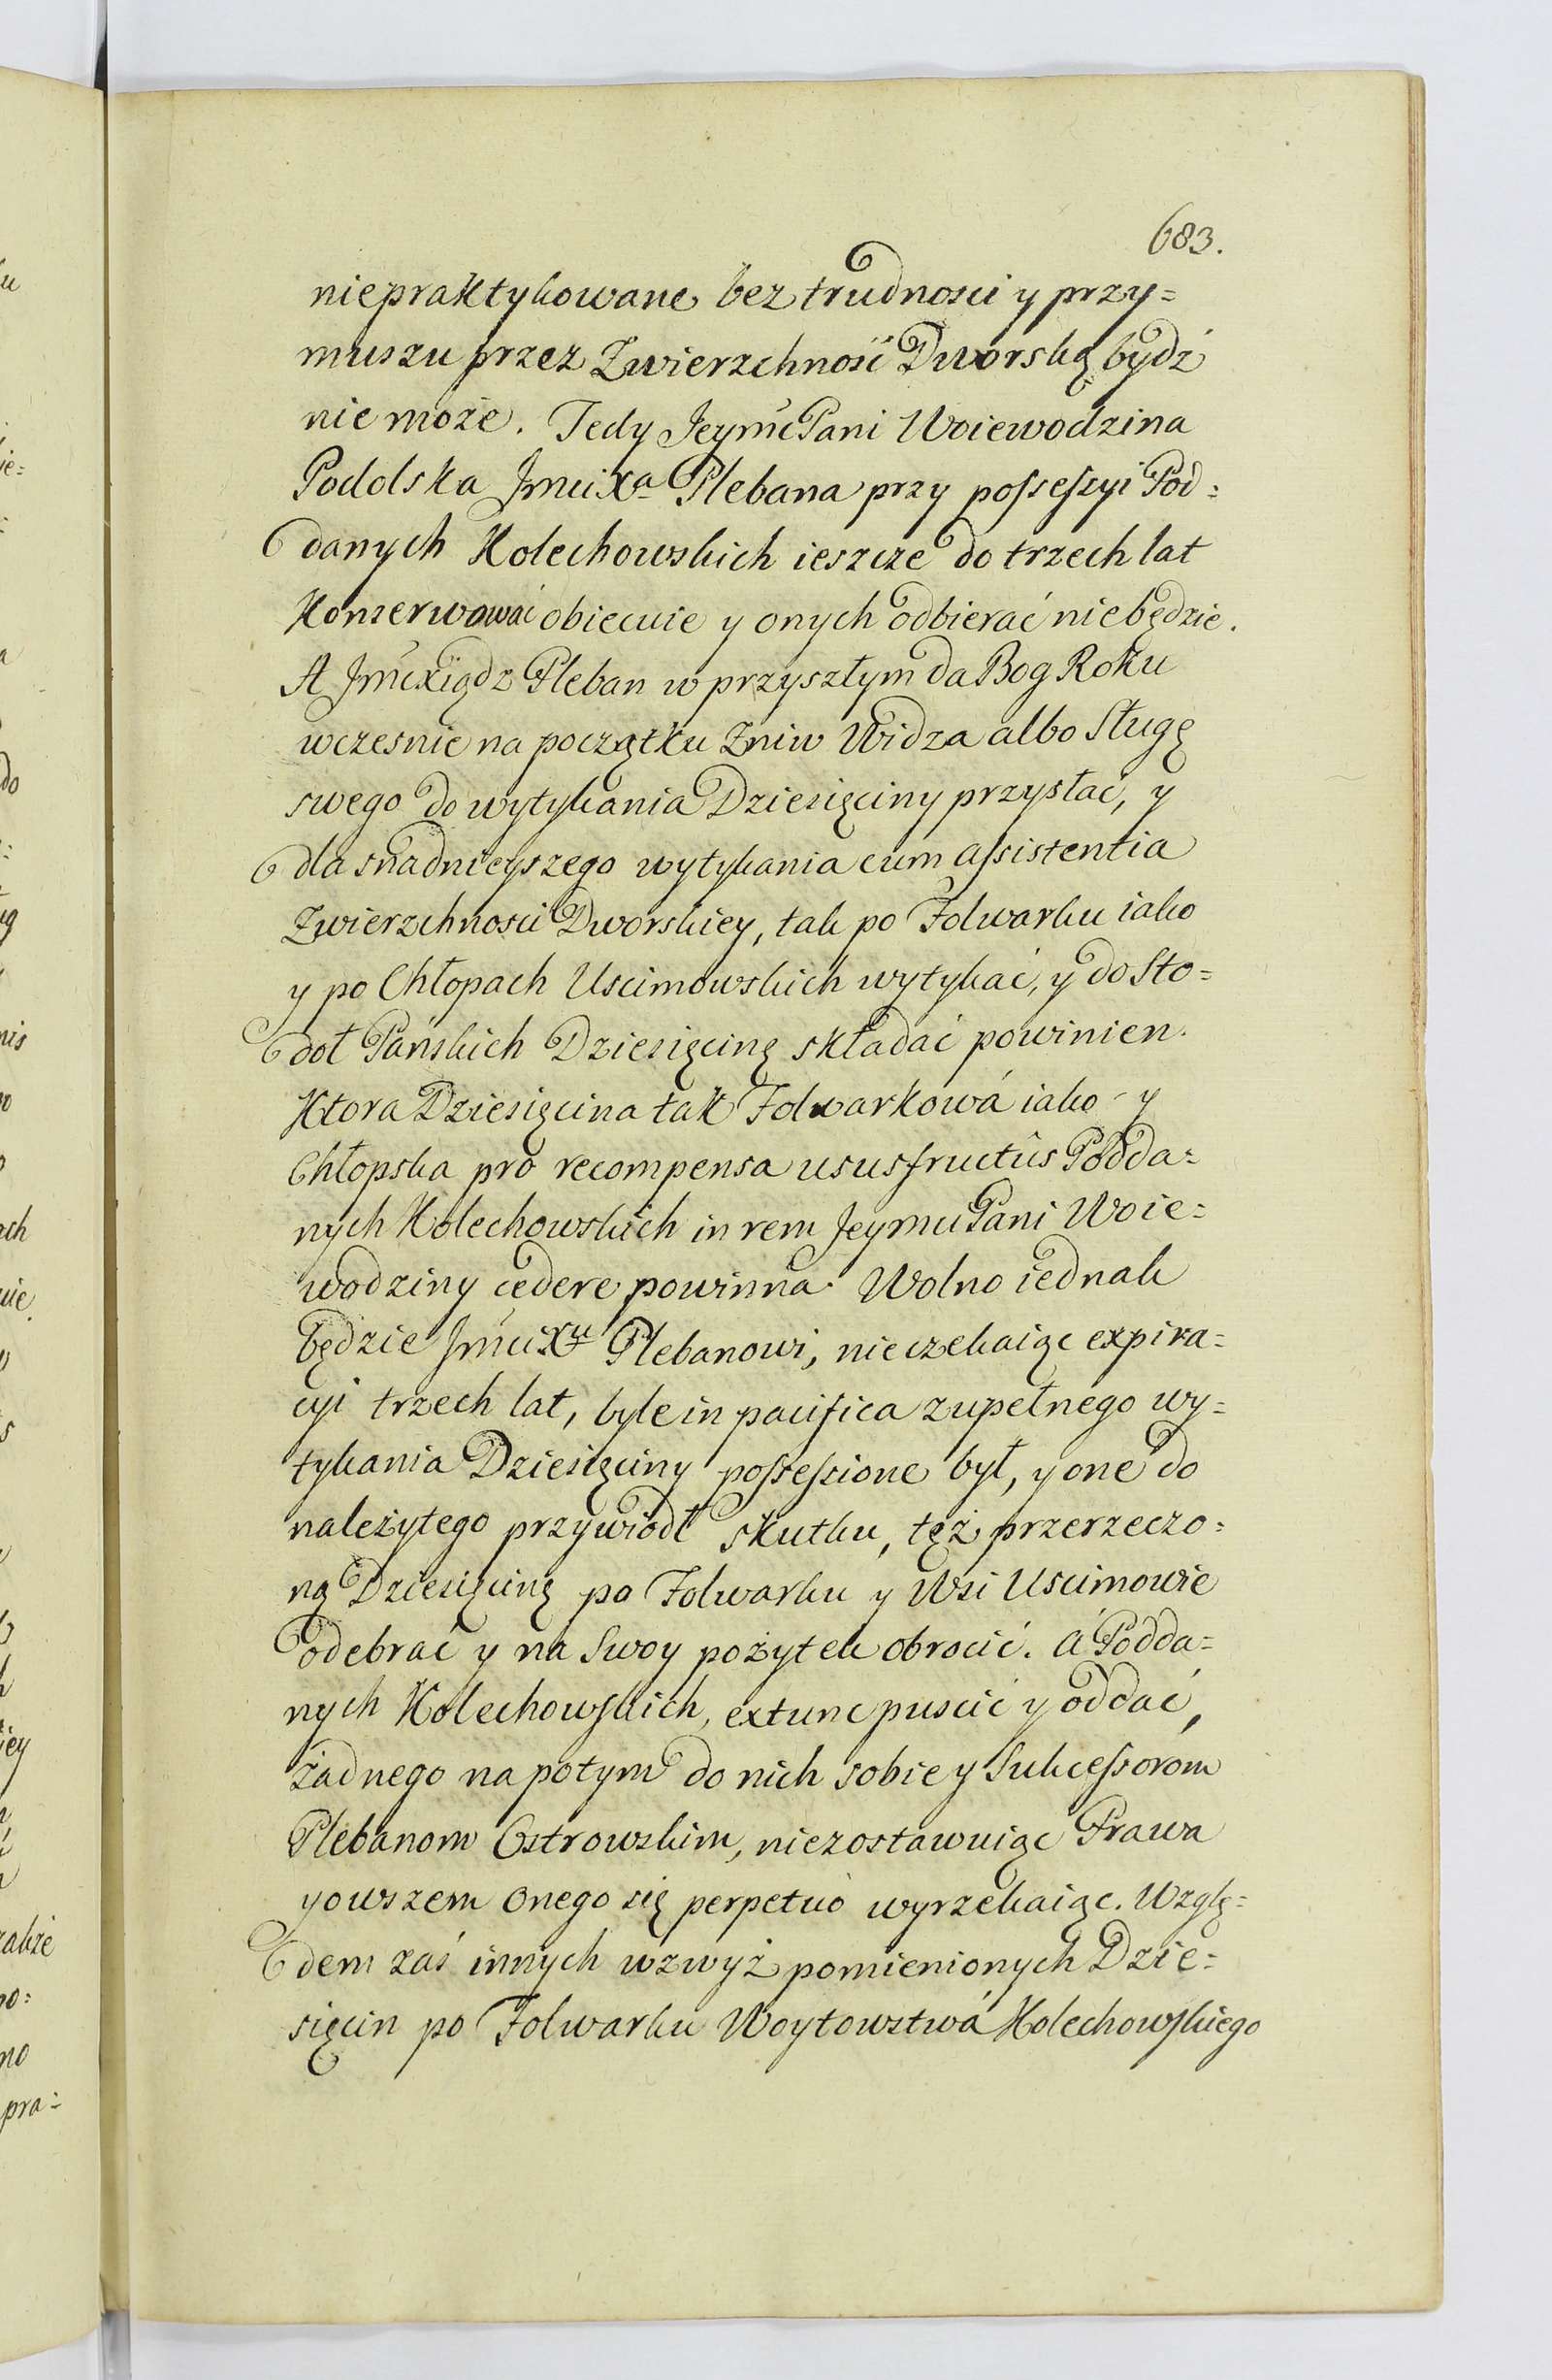 683.
niepraktykowane bez trudnosci y przy=
muszu przez Zwierzchność Dworską bydź
nie może. Tedy Jeymć Pani Woiewodzina
Podolska Jmci Xa Plebana przy possessyi Pod=
danych Kolechowskich ieszcze do trzech lat
Konserwować obiecuie y onych odbierać niebędzie.
A Jmć xiądz Pleban w przyszłym da Bog Roku
wczesnie na początku Zniw Widza albo Sługę
swego do wytykania Dziesięciny przysłać, y
dla snadnieyszego wytykania cum assistentia
Zwierzchnosci Dworskiey, tak po Folwarku iako
y po Chłopach Uscimowskich wytykać, y do Sto=
doł Pańskich Dziesięcinę składać powinien.
Ktora Dziesięcina tak Folwarkowá iako y
Chłopska pro recompensa ususfructûs Podda=
nych Kolechowskich in rem Jeymci Pani Woie=
wodziny cedere powinna. Wolno iednak
będzie Jmći Xu Plebanowi, nieczekaiąc expira=
cyi trzech lat, byle in pacifica zupełnego wy=
tykania Dziesięciny possessione był, y one do
należytego przywiodł skutku, tęż przerzeczo=
ną Dziesięcinę po Folwarku y Wsi Uscimowie
odebrać y na Swoy pożytek obrocić. á Podda=
nych Kolechowskich, extunc puscić y oddać,
żadnego napotym do nich sobie y Sukcessorom
Plebanom Ostrowskim, niezostawuiąc Prawa
yowszem onego się perpetuò wyrzekaiąc. Wzglę=
dem zaś innych wzwyż pomienionych Dzie=
sięcin po Folwarku Woytowstwá Kolechowskiego